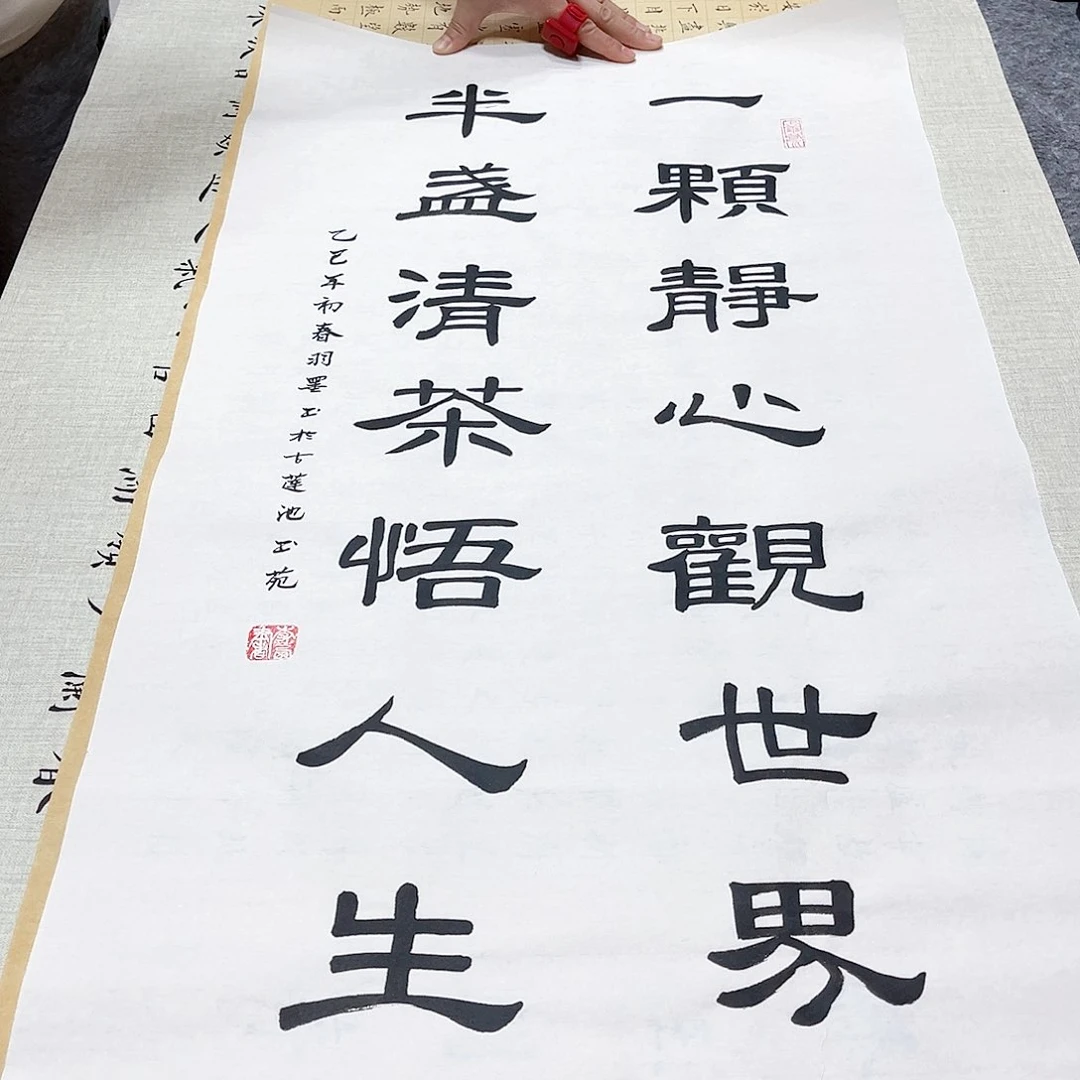 一顆靜心觀世界
半盞清茶悟人生
乙巳年初春羽墨书於古蓮池书苑